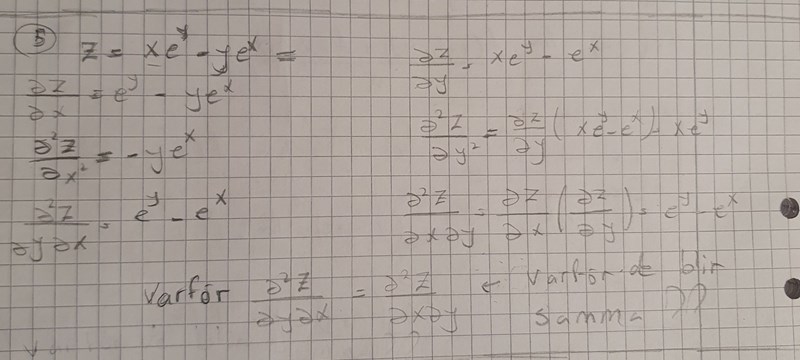 5 z = xe^y - ye^x =
∂z/∂x = e^y - ye^x
∂²z/∂x² = -ye^x
∂²z/∂y∂x = e^y - e^x
∂z/∂y = xe^y - e^x
∂²z/∂y² = ∂z/∂y (xe^y - e^x) = xe^y
∂²z/∂x∂y = ∂z/∂x (∂z/∂y) = e^y - e^x
Varför ∂²z/∂y∂x = ∂²z/∂x∂y ← Varför de blir
samma ??